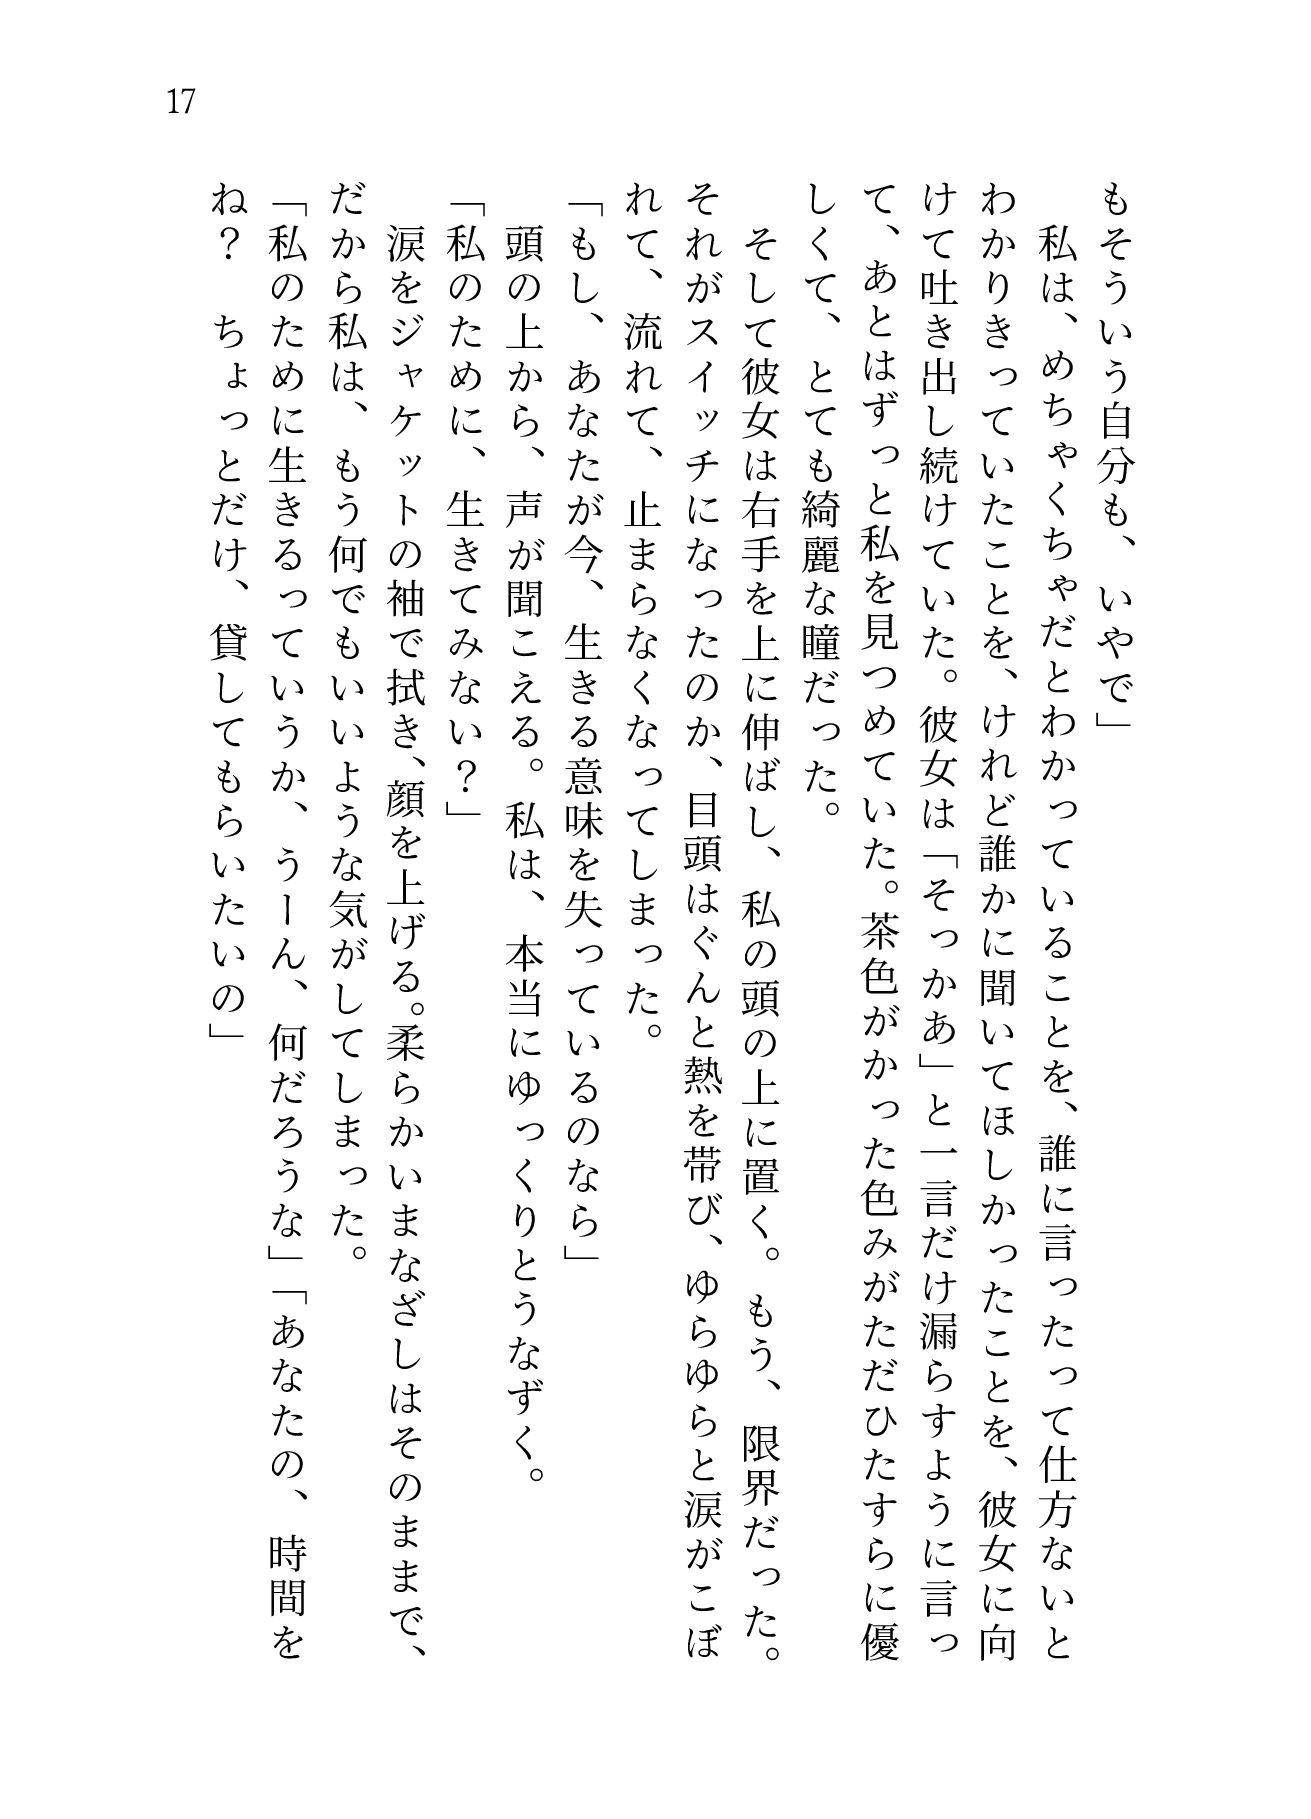 17
もそういう自分も、いやで」
　私は、めちゃくちゃだとわかっていることを、誰に言ったって仕方ないと
わかりきっていたことを、けれど誰かに聞いてほしかったことを、彼女に向
けて吐き出し続けていた。彼女は「そっかあ」と一言だけ漏らすように言っ
て、あとはずっと私を見つめていた。茶色がかった色みがただひたすらに優
しくて、とても綺麗な瞳だった。
　そして彼女は右手を上に伸ばし、私の頭の上に置く。もう、限界だった。
それがスイッチになったのか、目頭はぐんと熱を帯び、ゆらゆらと涙がこぼ
れて、流れて、止まらなくなってしまった。
「もし、あなたが今、生きる意味を失っているのなら」
　頭の上から、声が聞こえる。私は、本当にゆっくりとうなずく。
「私のために、生きてみない？」
　涙をジャケットの袖で拭き、顔を上げる。柔らかいまなざしはそのままで、
だから私は、もう何でもいいような気がしてしまった。
「私のために生きるっていうか、うーん、何だろうな」「あなたの、時間を
ね？　ちょっとだけ、貸してもらいたいの」